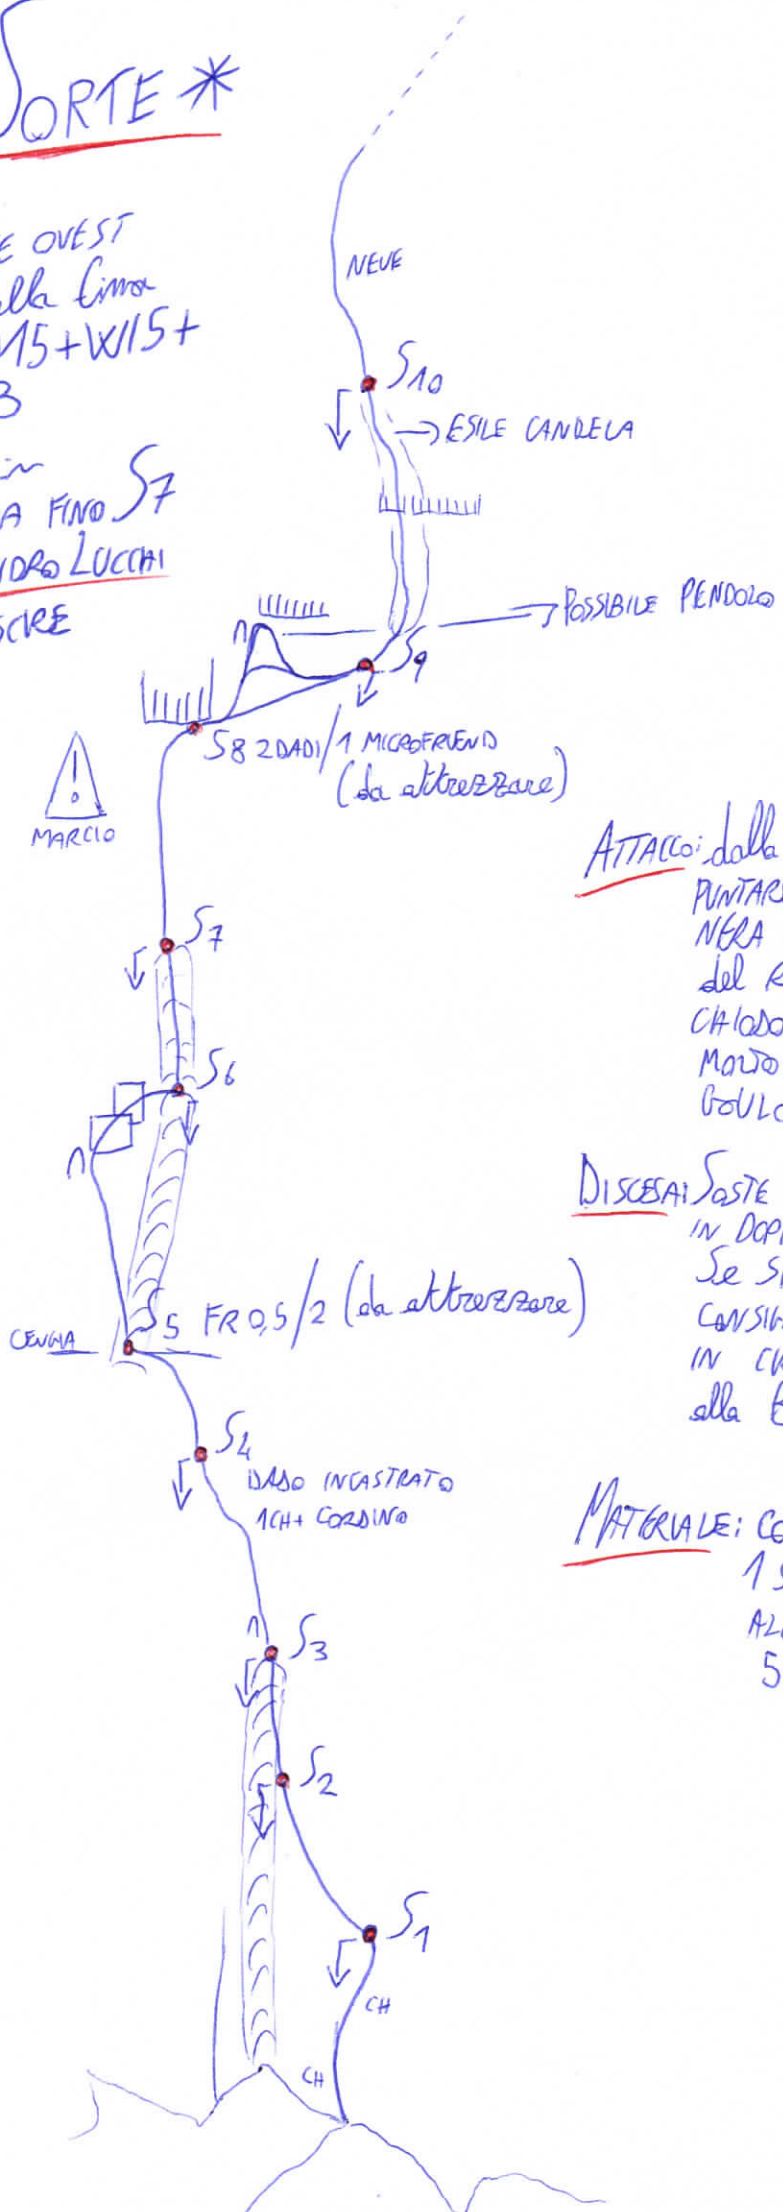 SORTE *
E OVEST
alla Cima
M5+WI5+
3
in
A FINO S7
NDRO LUCCHI
SCIRE
NEVE
S10
ESILE CANDELA
POSSIBILE PENDOLO
S9
S8 2DADI/1 MICROFRIEND
(da attrezzare)
MARCIO
S7
S6
S5 FR 0,5/2 (da attrezzare)
CENGIA
S4
DADO INCASTRATO
1CH+ CORDINO
S3
S2
S1
CH
CH
ATTACCO: dalla
PUNTAR
NERA
del
CHIODO
MOLTO
GOULO
DISCESA: SOSTE
IN DOP
Se S
CONSIG
IN
alla
MATERIALE: CO
1 S
AL
5